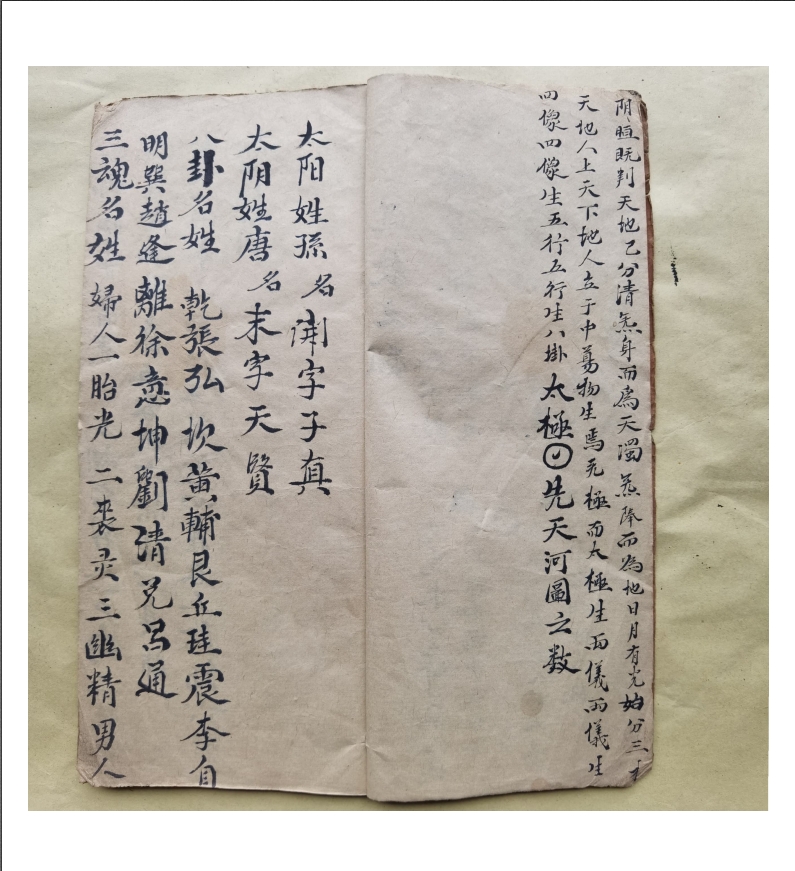 阴𣈆既判天地已分清炁身而爲天濁炁降而為地日月有光始分三才
天地人上天下地人立于中萬物生焉无極而太極生两儀两儀生
四像四像生五行五行生八掛太極先天河圖之数
太阳姓孫名開字子真
太阴姓唐名末字天賢
八卦名姓乾張弘坎黄輔艮丘珪震李自
明巽趙逢離徐意坤劉清兑呂通
三魂名姓婦人一胎光二裒灵三幽精男人